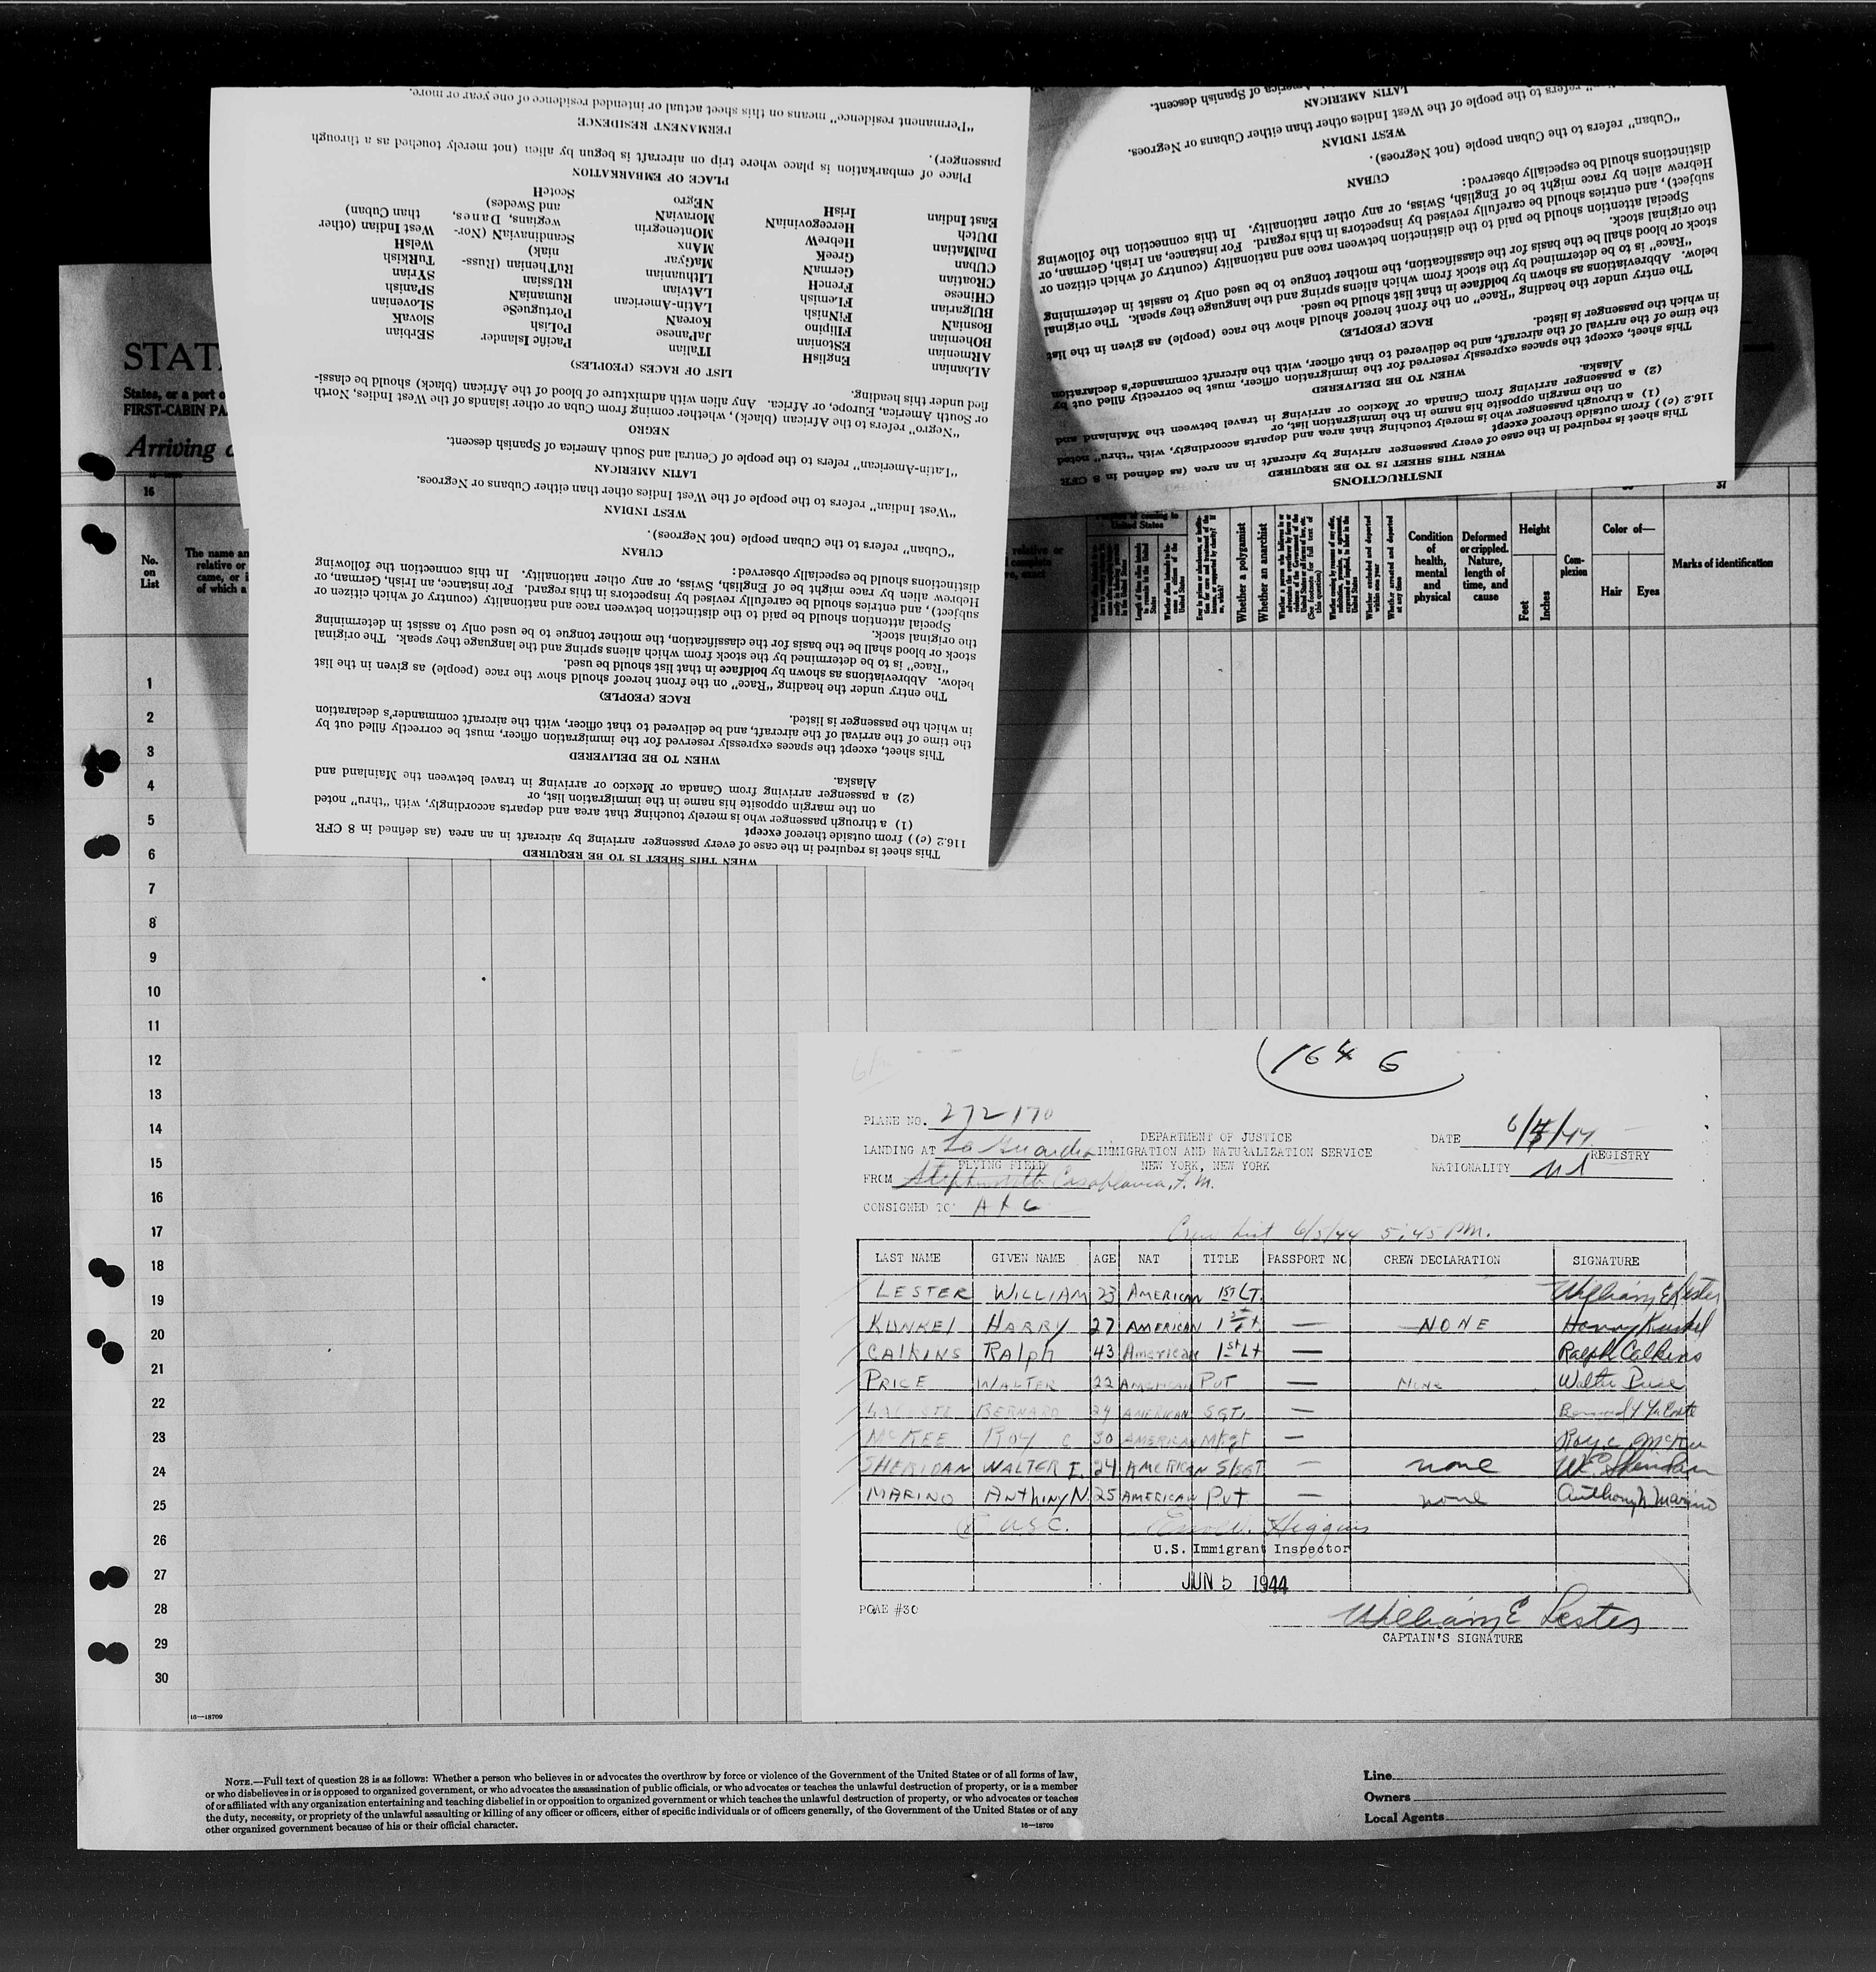 "Permanent residence" means on this sheet actual or intended residence of one year or more.
PERMANENT RESIDENCE
passenger).
Place of embarkation is place where trip on aircraft is begun by alien (not merely touched as a through
PLACE OF EMBARKATION
WHEN THIS SHEET IS TO BE REQUIRED
This sheet is required in the case of every passenger arriving by aircraft in an area (as defined in 8 CFR
116.2 (c)) from outside thereof except
(1) a through passenger who is merely touching that area and departs accordingly, with "thru" noted
on the margin opposite his name in the immigration list, or
(2) a passenger arriving from Canada or Mexico or arriving in travel between the Mainland and
Alaska.
WHEN TO BE DELIVERED
This sheet, except the spaces expressly reserved for the immigration officer, must be correctly filled out by
the time of the arrival of the aircraft, and be delivered to that officer, with the aircraft commander's declaration
in which the passenger is listed.
RACE (PEOPLE)
The entry under the heading "Race" on the front hereof should show the race (people) as given in the list
below. Abbreviations as shown by boldface in that list should be used.
"Race" is to be determined by the stock from which aliens spring and the language they speak. The original
stock or blood shall be the basis for the classification, the mother tongue to be used only to assist in determining
the original stock.
Special attention should be paid to the distinction between race and nationality (country of which citizen or
subject), and entries should be carefully revised by inspectors in this regard. For instance, an Irish, German, or
Hebrew alien by race might be of English, Swiss, or any other nationality. In this connection the following
distinctions should be especially observed:
CUBAN
"Cuban" refers to the Cuban people (not Negroes).
WEST INDIAN
"West Indian" refers to the people of the West Indies other than either Cubans or Negroes.
LATIN AMERICAN
"Latin-American" refers to the people of Central and South America of Spanish descent.
NEGRO
"Negro" refers to the African (black), whether coming from Cuba or other islands of the West Indies, North
or South America, Europe, or Africa. Any alien with admixture of blood of the African (black) should be classi-
fied under this heading.
LIST OF RACES (PEOPLES)
ALbanian EngliSH ITalian Pacific Islander SErbian
ARmenian EStonian JaPanese PoLish SlovaK
BOhemian FIlipino KoreaN PortugueSe SlOvenian
BosniaN FiNnish LAtin-American RumaniaN SPanish
BUlgarian FLemish LATvian RUSsian SYrian
CHinese FrencH LIthuanian RuThenian (Russ- TuRkish
CRoatian GermaN MaGyar niak) WelsH
CUban GreeK MAnx Scandinavian (Nor- West Indian (other
DalMatian HebreW MOntenegrin wegians, Danes, than Cuban)
DUtch HercegovinIaN MoraviaN and Swedes)
East Indian IrisH NEgro ScotcH
INSTRUCTIONS
WHEN THIS SHEET IS TO BE REQUIRED
This sheet is required in the case of every passenger arriving by aircraft in an area (as defined in 8 CFR
116.2 (c)) from outside thereof except
(1) a through passenger who is merely touching that area and departs accordingly, with "thru" noted
on the margin opposite his name in the immigration list, or
(2) a passenger arriving from Canada or Mexico or arriving in travel between the Mainland and
Alaska.
WHEN TO BE DELIVERED
This sheet, except the spaces expressly reserved for the immigration officer, must be correctly filled out by
the time of the arrival of the aircraft, and be delivered to that officer, with the aircraft commander's declaration
in which the passenger is listed.
RACE (PEOPLE)
The entry under the heading "Race" on the front hereof should show the race (people) as given in the list
below. Abbreviations as shown by boldface in that list should be used.
"Race" is to be determined by the stock from which aliens spring and the language they speak. The original
stock or blood shall be the basis for the classification, the mother tongue to be used only to assist in determining
the original stock.
Special attention should be paid to the distinction between race and nationality (country of which citizen or
subject), and entries should be carefully revised by inspectors in this regard. For instance, an Irish, German, or
Hebrew alien by race might be of English, Swiss, or any other nationality. In this connection the following
distinctions should be especially observed:
CUBAN
"Cuban" refers to the Cuban people (not Negroes).
WEST INDIAN
refers to the people of the West Indies other than either Cubans or Negroes.
LATIN AMERICAN
America of Spanish descent.
STAT
States, or a port o
FIRST-CABIN PA
Arriving a
16
31
No. on List
The name an
relative or
came, or i
of which a
United States
Whether a polygamist
Whether an anarchist
Condition of health, mental and physical
Deformed or crippled. Nature, length of time, and cause
Height
Feet
Inches
Complexion
Color of—
Hair
Eyes
Marks of identification
1
2
3
4
5
6
7
8
9
10
11
12
13
14
15
16
17
18
19
20
21
22
23
24
25
26
27
28
29
30
16—18709
164 6
PLANE NO. 272170
DEPARTMENT OF JUSTICE
DATE
LANDING AT La Guardia IMMIGRATION AND NATURALIZATION SERVICE
REGISTRY
FLYING FIELD NEW YORK, NEW YORK
NATIONALITY
FROM Casablanca, F. M.
CONSIGNED TO
Crew List 6/5/44 5:45 PM.
LAST NAME GIVEN NAME AGE NAT TITLE PASSPORT NO CREW DECLARATION SIGNATURE
LESTER WILLIAM 23 AMERICAN 1ST LT. William E Lester
KUNKEL HARRY 27 AMERICAN 1st Lt — NONE Harry Kunkel
CALKINS RAlph 43 American 1st Lt — Ralph Calkins
PRICE WALTER 22 AMERICAN PVT — NONE Walter Price
BERNARD 24 AMERICAN SGT. —
McKEE ROY C 30 AMERICAN M/Sgt — Roy C McKee
SHERIDAN WALTER E. 24 AMERICAN S/SGT — none W.E. Sheridan
MARINO ANthiny N. 25 AMERICAN PVT — none Anthony N Marino
USC. Higgins
U.S. Immigrant Inspector
JUN 5 1944
POAE #30
William E Lester
CAPTAIN'S SIGNATURE
NOTE.—Full text of question 28 is as follows: Whether a person who believes in or advocates the overthrow by force or violence of the Government of the United States or of all forms of law,
or who disbelieves in or is opposed to organized government, or who advocates the assassination of public officials, or who advocates or teaches the unlawful destruction of property, or is a member
of or affiliated with any organization entertaining and teaching disbelief in or opposition to organized government or which teaches the unlawful destruction of property, or who advocates or teaches
the duty, necessity, or propriety of the unlawful assaulting or killing of any officer or officers, either of specific individuals or of officers generally, of the Government of the United States or of any
other organized government because of his or their official character.
16—18709
Line
Owners
Local Agents